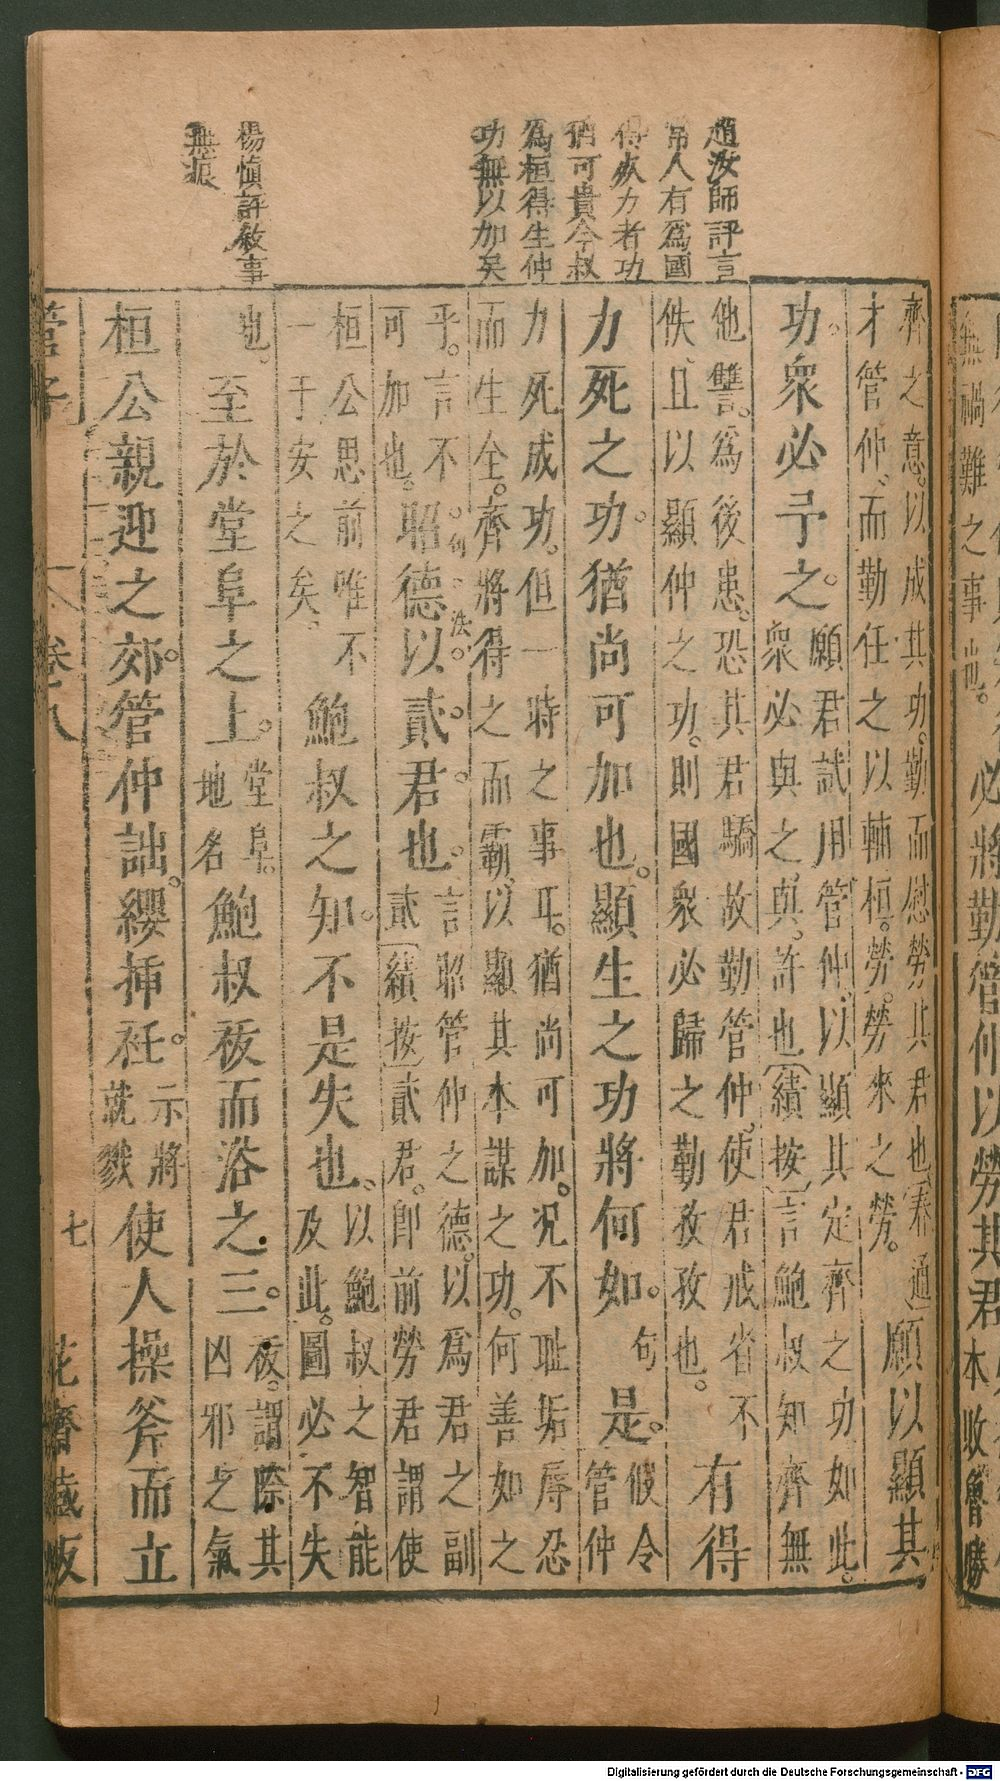 趙汝師評言
常人有為國
得效力者功
猶可貴今叔
為桓得生仲
功無以加矣
楊慎評敘事
無痕
無禍難之事也。必將勤管仲以勞其君本收魯勝
齊之意。以成其功。勤而慰勞其君也(朱通)
才管仲、而勤任之以輔桓。勞。勞來之勞。願以顯其
功。衆必予之。願君試用管仲、以顯其定齊之功如此。
衆必與之、與、許也(績按)言鮑叔知齊無
他讐。爲後患。恐其君驕故勤管仲、使君戒省不
佚、且以顯仲之功。則國衆必歸之勤孜孜也。有得
力死之功。猶尚可加也。顯生之功將何如。句是。彼令
管仲
力死成功。但一時之事耳。猶尚可加。况不耻垢辱忍
而生全。齊將得之而霸、以顯其本謀之功。何善如之
乎。言不
可加也。昭德以貳。君也。句法。言昭管仲之德。以爲君之副
貳(績按)貳君。卽前勞君謂使
桓公思前唯不
一于安之矣。鮑叔之知。不是失也、以鮑叔之智能
及此。圖必不失
也。至於堂阜之上。堂阜。
地名鮑叔祓而浴之三。祓。謂除其
凶邪之氣
桓公親迎之郊。管仲詘。纓揷衽。示將
就戮使人操斧而立
管子 卷八 七 花齋藏板
Digitalisierung gefördert durch die Deutsche Forschungsgemeinschaft - DFG